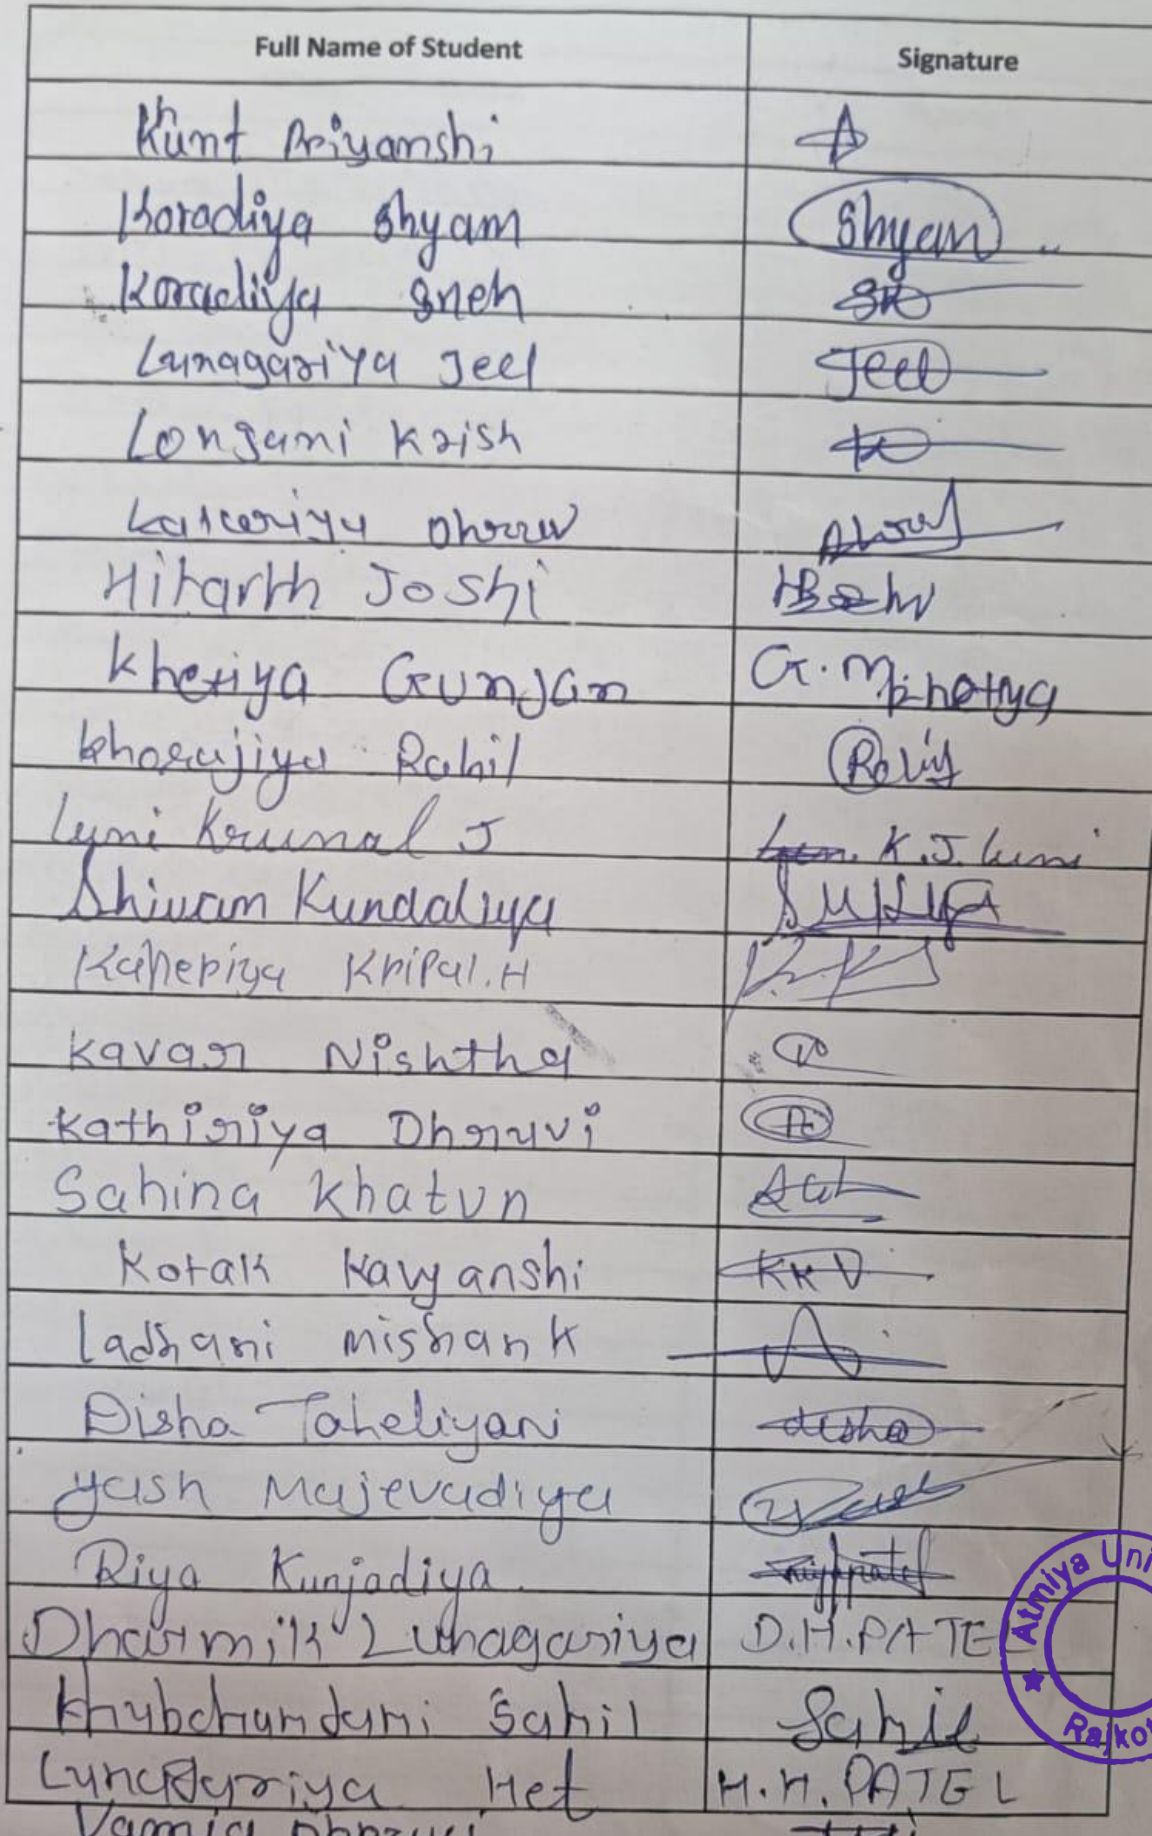 Full Name of Student Signature
Khunt Priyanshi
Koradiya Shyam Shyam
Koradiya Sneh
Lunagariya Jeel Jeel
Longani Krish
Dhruv
Hitarth Joshi
Kheriya Gunjan G.M.
Khorajiya Rahil
Luni Krunal J K.J. Luni
Shivam Kundaliya
Kaneriya Kripal.H
Kavar Nishtha
Kathiriya Dhruvi
Sahina Khatun
Kotak Kavyanshi
Ladhani Mishank
Disha Taheliyani disha
Yash Majevadiya
Riya Kunjadiya
Dharmik Lunagariya D.H.PATEL
Khubchandani Sahil Sahil
Lunagariya Het H.H.PATEL
Atmiya Uni
Rajko